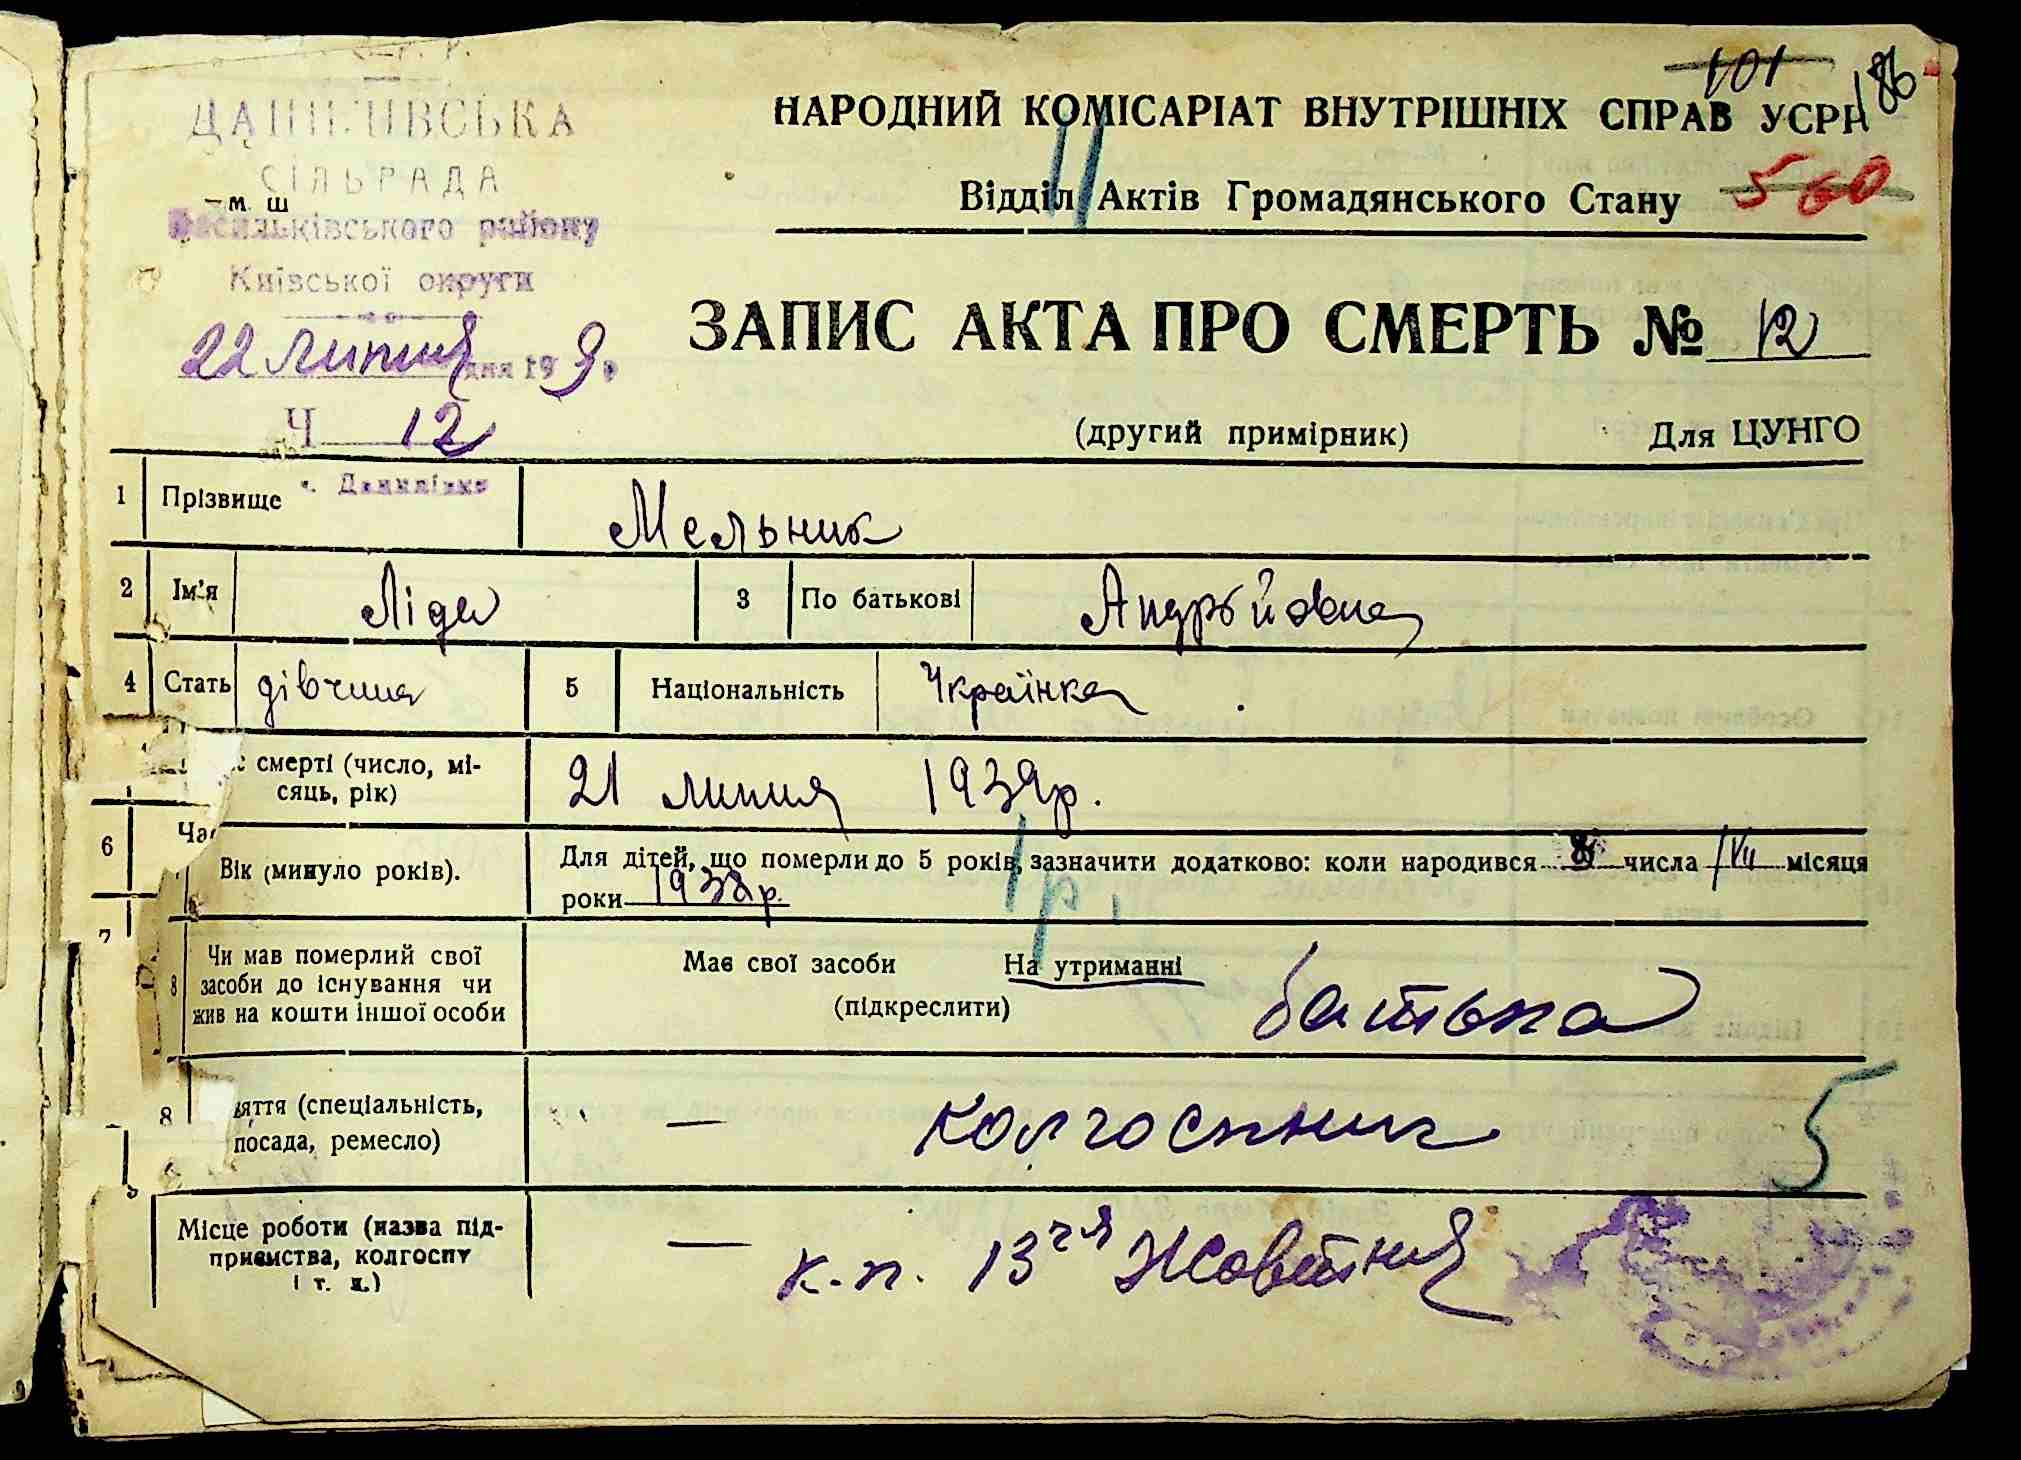 101
186
ДАНИЛІВСЬКА
СІЛЬРАДА
м. ш
Васильківського району
Київської округи
22 липня дня 19 9 р
Ч 12
с. Данилівка
НАРОДНИЙ КОМІСАРІАТ ВНУТРІШНІХ СПРАВ УСРР
11
Відділ Актів Громадянського Стану 560
ЗАПИС АКТА ПРО СМЕРТЬ № 12
(другий примірник) Для ЦУНГО
1 Прізвище Мельник
2 Ім'я Ліда 3 По батькові Андрѣйовна
4 Стать дівчина 5 Національність Українка
с смерті (число, мі-
сяць, рік) 21 липня 1939р.
6 Час
Вік (минуло років). Для дітей, що померли до 5 років, зазначити додатково: коли народився числа VII місяця
роки 1938р. 1р.
7
8 Чи мав померлий свої
засоби до існування чи
жив на кошти іншої особи Має свої засоби На утриманні
(підкреслити) батька
8 няття (спеціальність,
посада, ремесло) — колгоспник 5
Місце роботи (назва під-
приємства, колгоспу
і т. и.) — к.-п. 13 чя Жовтня